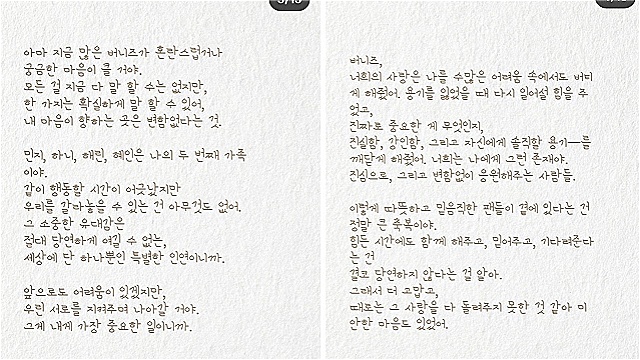 아마 지금 많은 버니즈가 혼란스럽거나
궁금한 마음이 클 거야.
모든 걸 지금 다 말 할 수는 없지만,
한 가지는 확실하게 말 할 수 있어,
내 마음이 향하는 곳은 변함없다는 것.
민지, 하니, 해린, 혜인은 나의 두 번째 가족
이야.
같이 행동할 시간이 어긋났지만
우리를 갈라놓을 수 있는 건 아무것도 없어.
그 소중한 유대감은
절대 당연하게 여길 수 없는,
세상에 단 하나뿐인 특별한 인연이니까.
앞으로도 어려움이 있겠지만,
우린 서로를 지켜주며 나아갈 거야.
그게 내게 가장 중요한 일이니까.
버니즈,
너희의 사랑은 나를 수많은 어려움 속에서도 버티
게 해줬어. 용기를 잃었을 때 다시 일어설 힘을 주
었고,
진짜로 중요한 게 무엇인지,
진실함, 강인함, 그리고 자신에게 솔직할 용기—를
깨닫게 해줬어. 너희는 나에게 그런 존재야.
진심으로, 그리고 변함없이 응원해주는 사람들.
이렇게 따뜻하고 믿음직한 팬들이 곁에 있다는 건
정말 큰 축복이야.
힘든 시간에도 함께 해주고, 믿어주고, 기다려준다
는 건
결코 당연하지 않다는 걸 알아.
그래서 더 고맙고,
때로는 그 사랑을 다 돌려주지 못한 것 같아 미
안한 마음도 있었어.